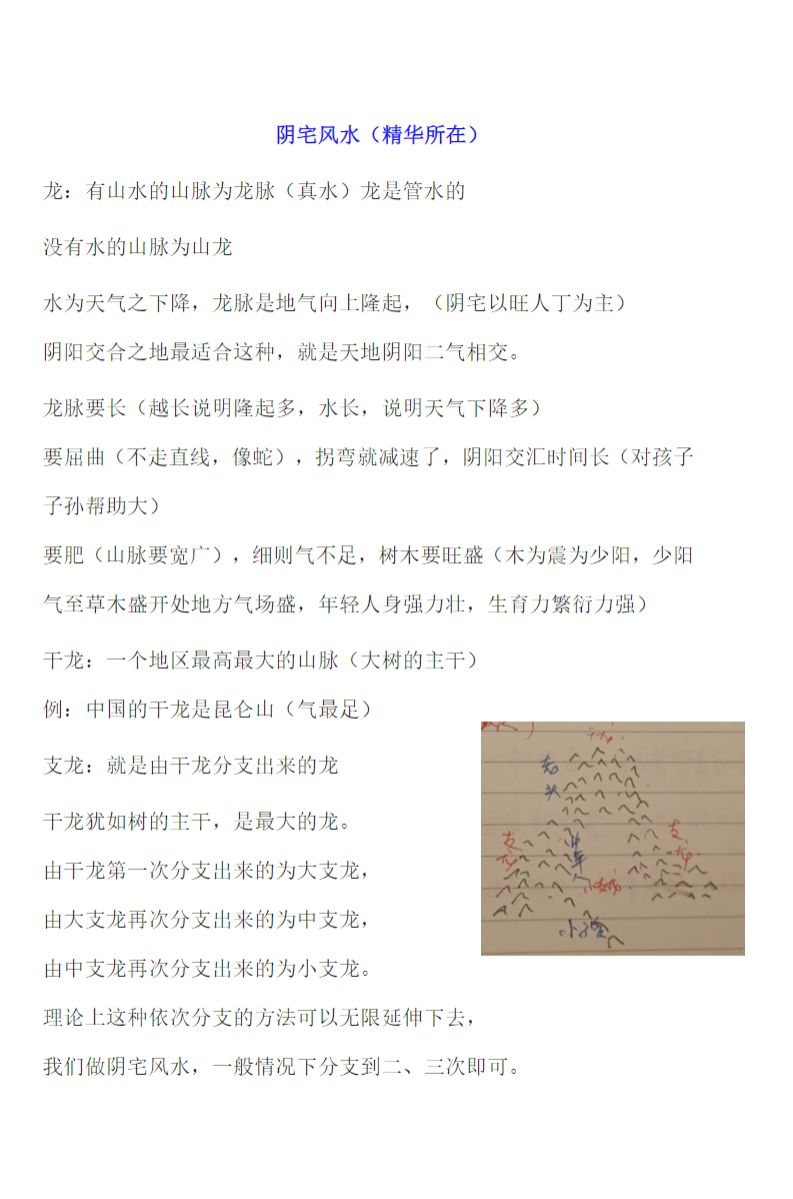 阴宅风水（精华所在）
龙：有山水的山脉为龙脉（真水）龙是管水的
没有水的山脉为山龙
水为天气之下降，龙脉是地气向上隆起，（阴宅以旺人丁为主）
阴阳交合之地最适合这种，就是天地阴阳二气相交。
龙脉要长（越长说明隆起多，水长，说明天气下降多）
要屈曲（不走直线，像蛇），拐弯就减速了，阴阳交汇时间长（对孩子
子孙帮助大）
要肥（山脉要宽广），细则气不足，树木要旺盛（木为震为少阳，少阳
气至草木盛开处地方气场盛，年轻人身强力壮，生育力繁衍力强）
干龙：一个地区最高最大的山脉（大树的主干）
例：中国的干龙是昆仑山（气最足）
支龙：就是由干龙分支出来的龙
干龙犹如树的主干，是最大的龙。
由干龙第一次分支出来的为大支龙，
由大支龙再次分支出来的为中支龙，
由中支龙再次分支出来的为小支龙。
理论上这种依次分支的方法可以无限延伸下去，
我们做阴宅风水，一般情况下分支到二、三次即可。
干龙
老头
支龙
中年
支龙
小支龙
小孩